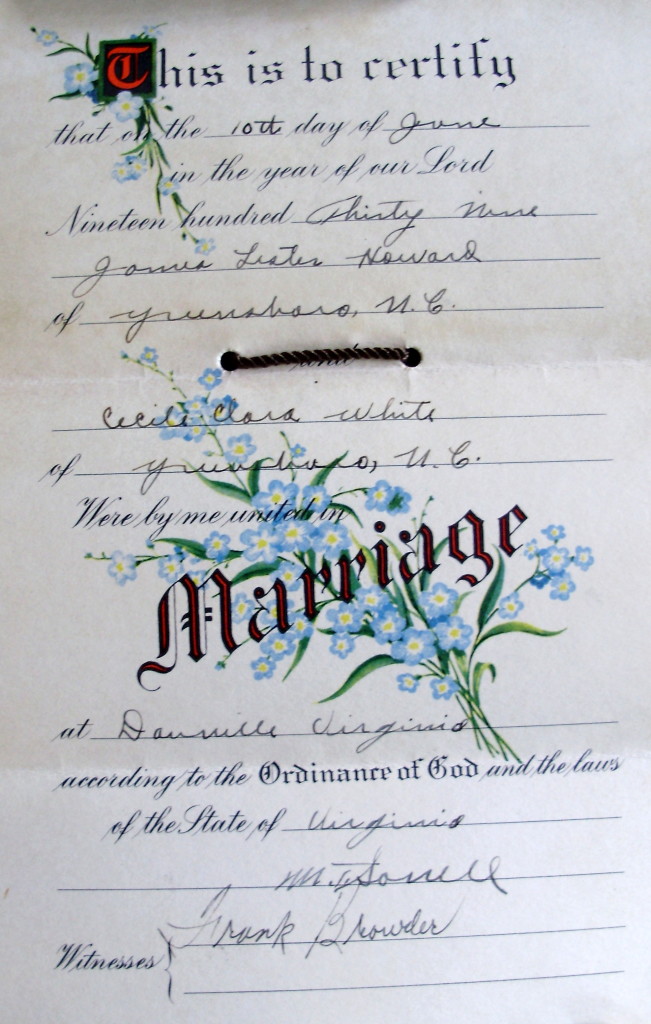 This is to certify
that on the 10th day of June
in the year of our Lord
Nineteen hundred Thirty Nine
James Lester Howard
of Greensboro, N.C.
and
Cecile Clara White
of Greensboro, N.C.
Were by me united in
Marriage
at Danville Virginia
according to the Ordinance of God and the laws
of the State of Virginia
Frank Browder
Witnesses